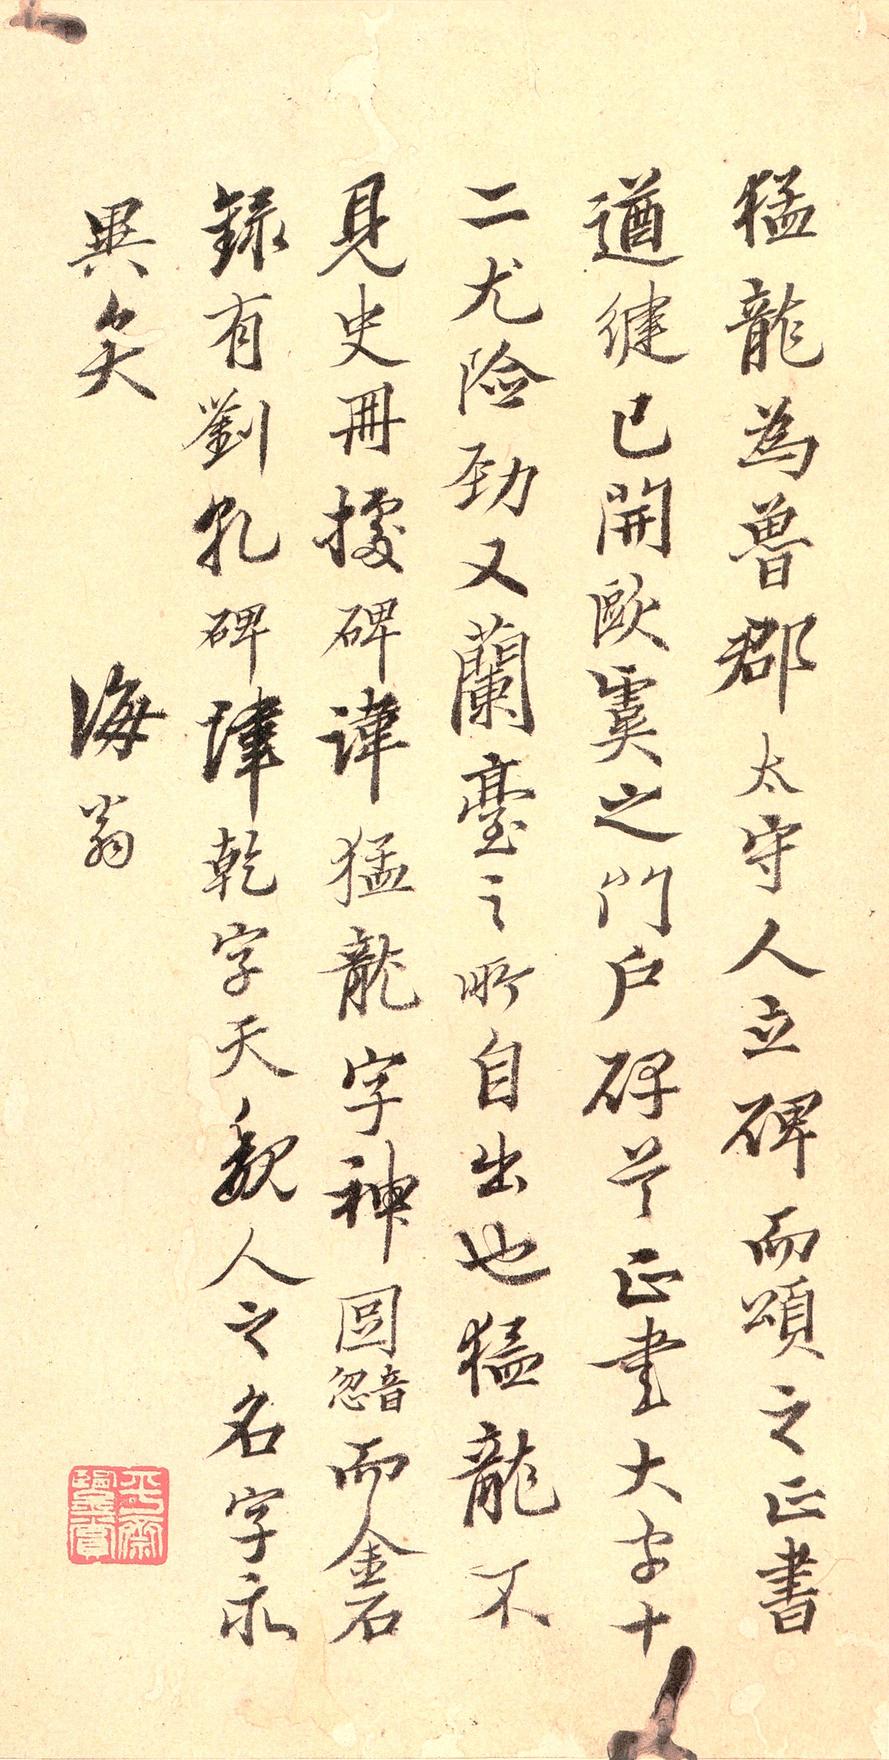 猛龍為魯郡太守人立碑而頌之正書
遒健已開歐虞之門戶碑首正書大字十
二尤險劲又蘭臺之所自出也猛龍不
見史冊據碑諱猛龍字神音忽而金石
録有劉碑諱乾字天魏人之名字亦
異矣
海翁
平齋鑒賞